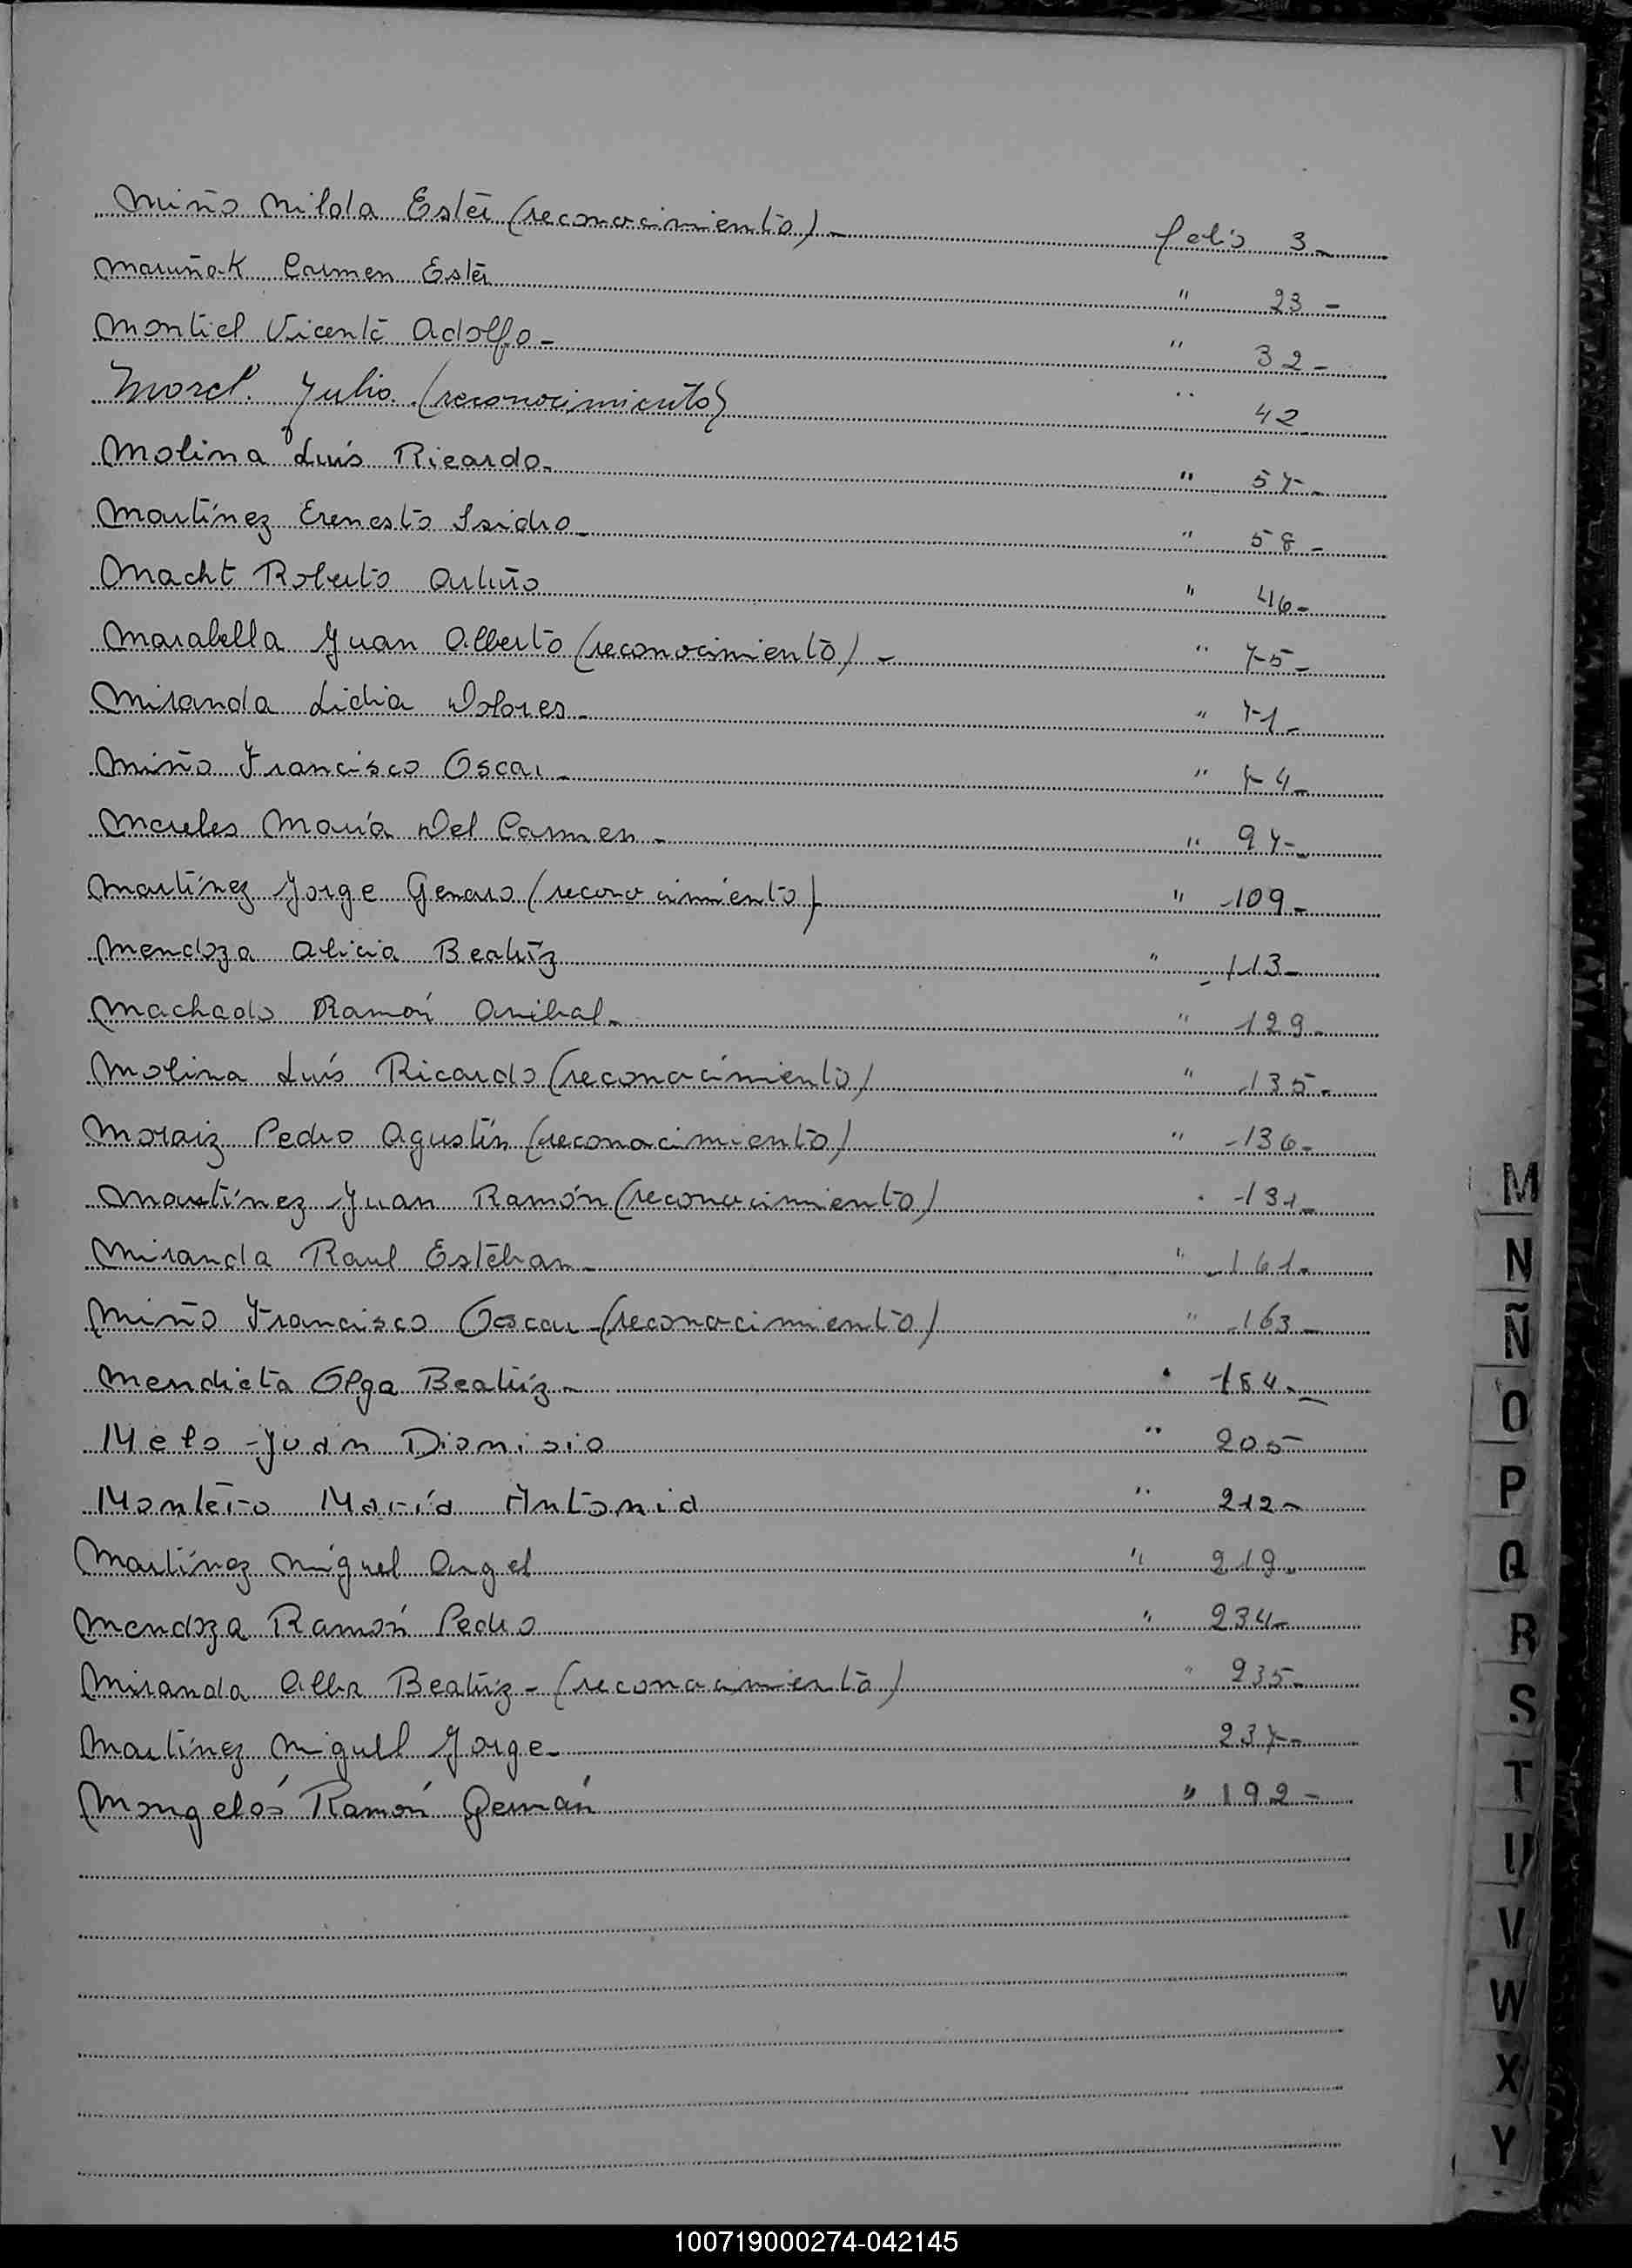 Miño Nilda Ester (reconocimiento) - folio 3 -
Maruñak Carmen Ester " 23 -
Montiel Vicente Adolfo - " 32 -
Morel. Julio. (reconocimiento) " 42
Molina Luís Ricardo - " 57 -
Martínez Erenesto Isidro - " 58 -
Macht Roberto Arturo " 46 -
Marabella Juan Alberto (reconocimiento) - " 75 -
Miranda Lidia Dolores - " 71 -
Miño Francisco Oscar - " 74 -
Mereles María Del Carmen - " 97 -
Martínez Jorge Genaro (reconocimiento) " 109 -
Mendoza Alicia Beatríz " 113 -
Machado Ramón Anibal - " 129 -
Molina Luís Ricardo (reconocimiento) " 135 -
Moraiz Pedro Agustín (reconocimiento) " 136 -
Martínez Juan Ramón (reconocimiento) " 131 -
Miranda Raul Esteban - " 161 -
Miño Francisco Oscar - (reconocimiento) " 163 -
Mendieta Olga Beatríz - " 184 -
Melo Juan Dionisio " 205
Monteiro María Antonia " 212 -
Martínez Miguel Angel " 219 -
Mendoza Ramón Pedro " 234 -
Miranda Alba Beatríz - (reconocimiento) " 235 -
Martínez Miguel Jorge - 237 -
Mongelós Ramón Germán " 192 -
M
N
Ñ
O
P
Q
R
S
T
U
V
W
X
Y
100719000274-042145